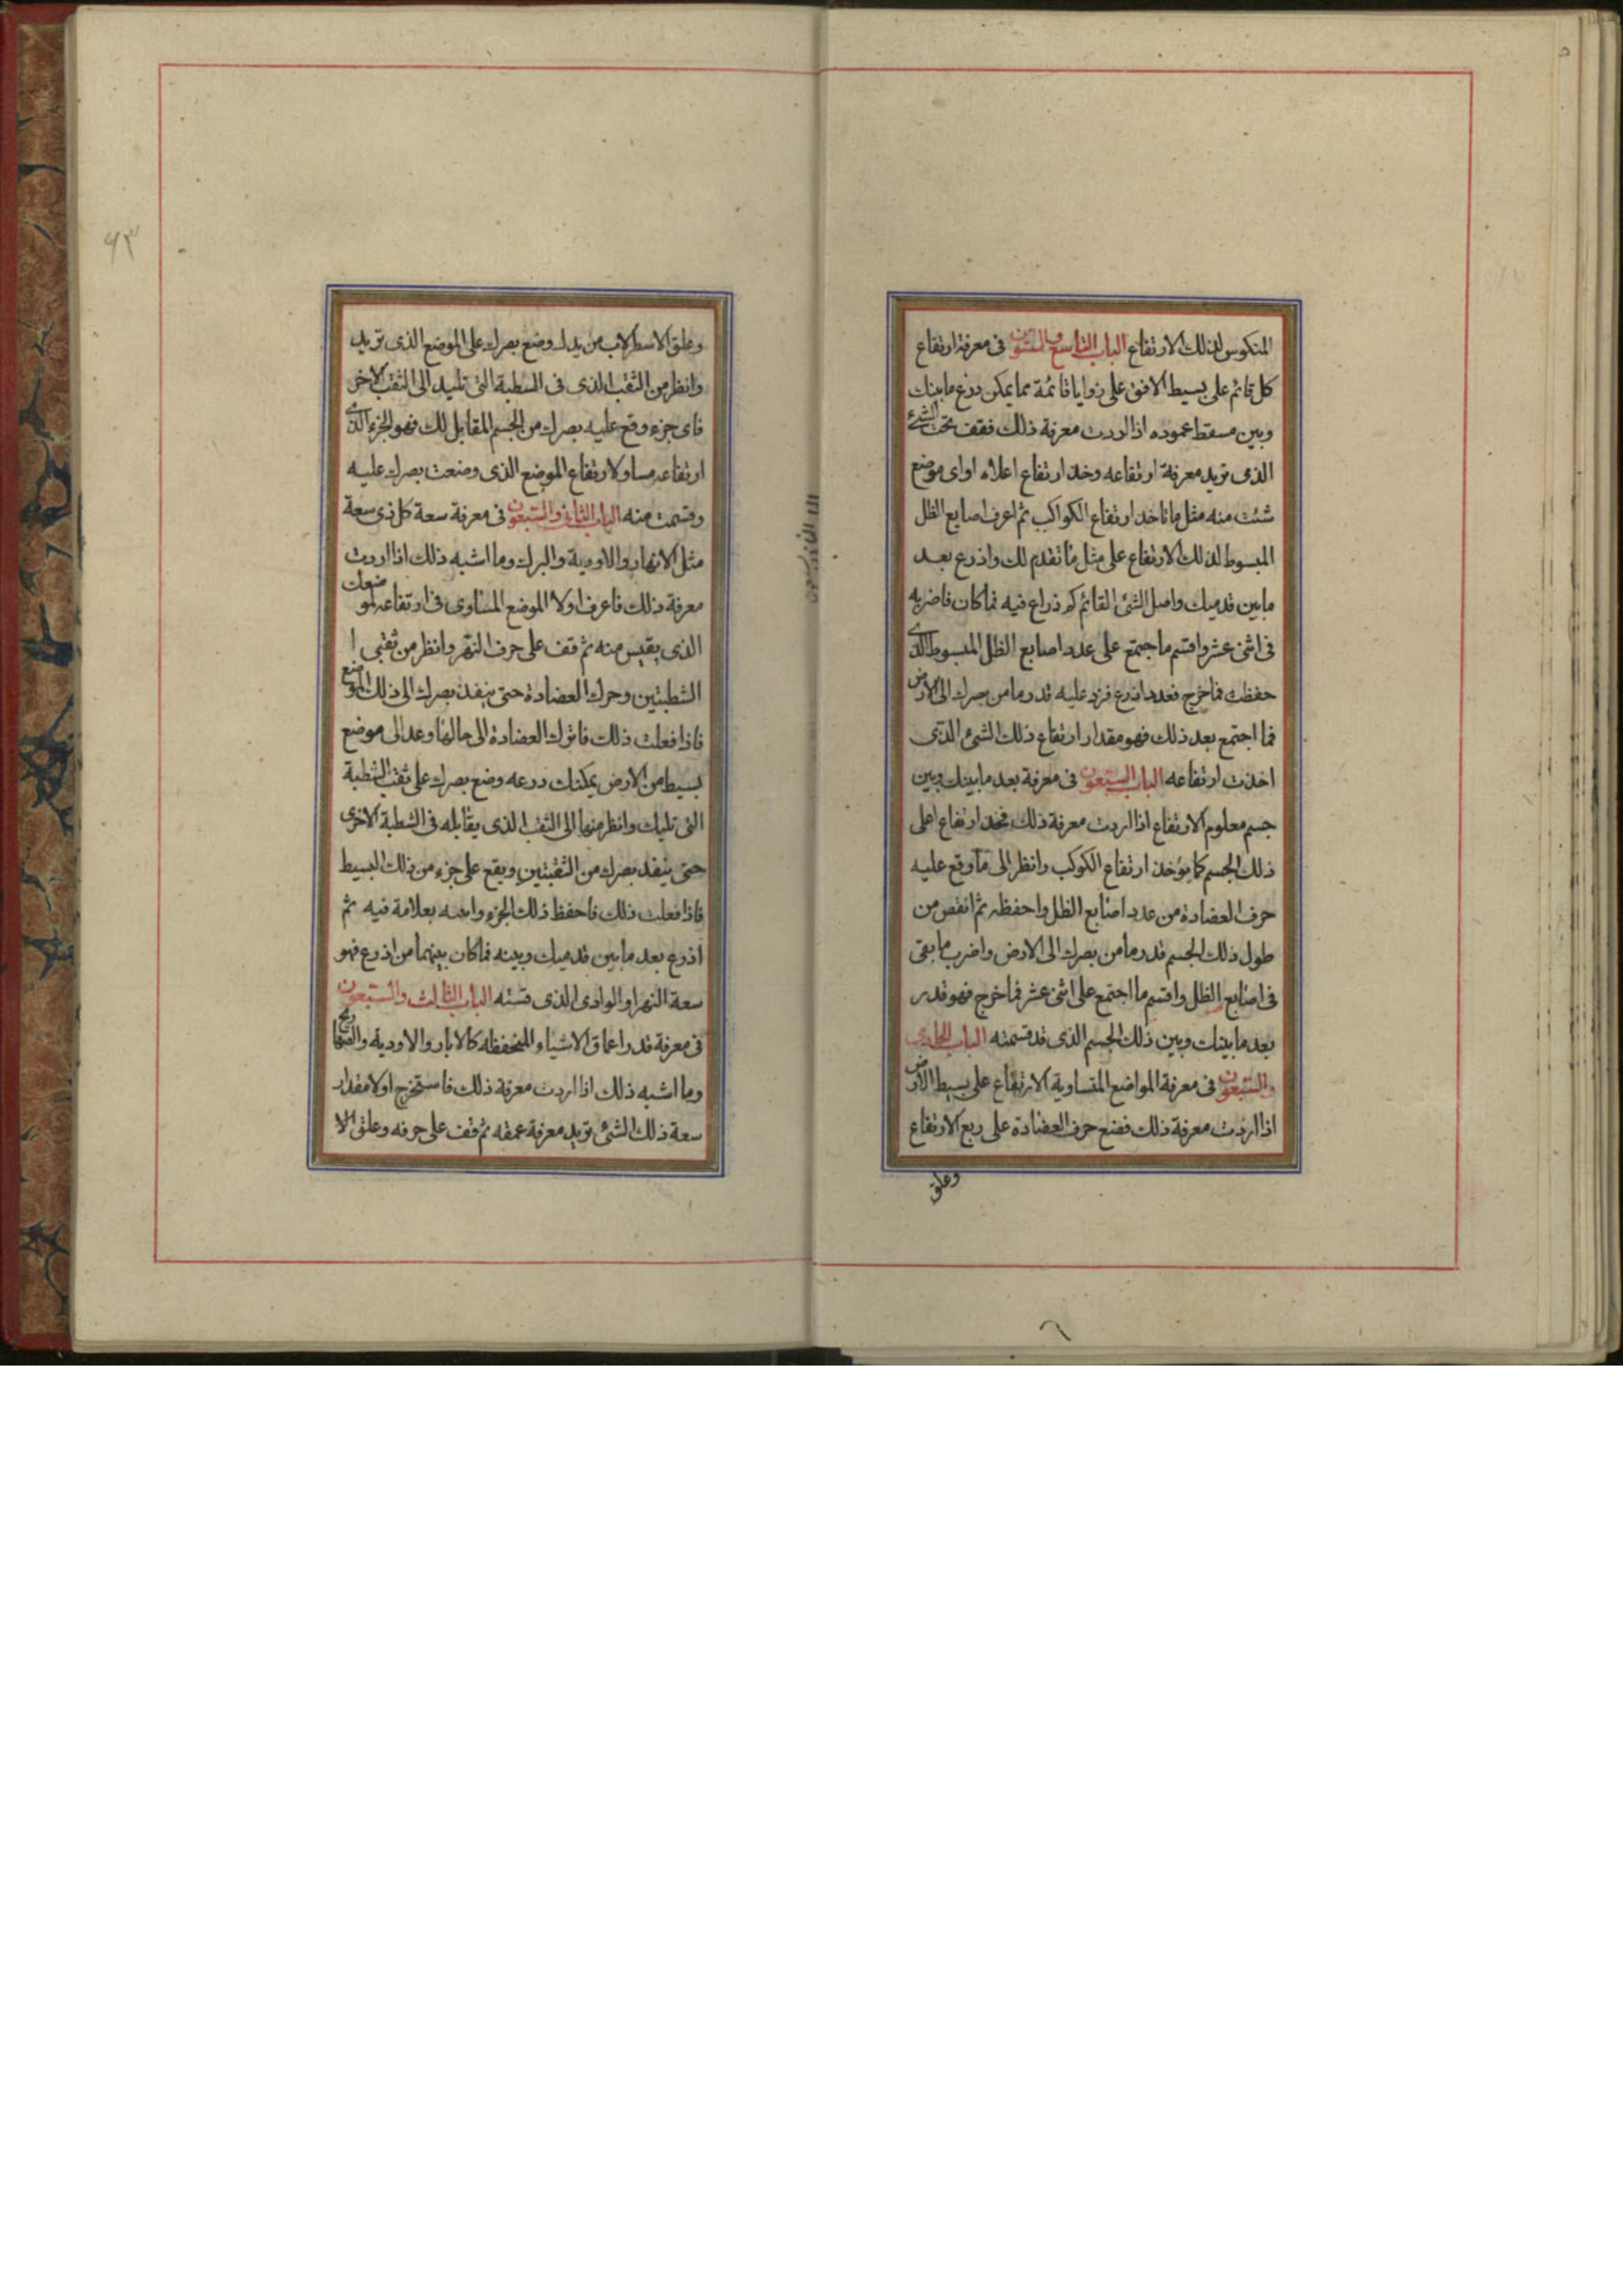 المنكوس لذلك الارتفاع الباب التاسع والستون فى معرفة ارتفاع
كل قائم على بسيط الافق على زوايا قائمة مما يمكن درع ما بينك
وبين مسقط عموده اذا اردت معرفة ذلك فقف تحت الشئ
الذى تريد معرفة ارتفاعه وخذ ارتفاع اعلاه او اى موضع
شئت منه مثل ما تاخذ ارتفاع الكواكب ثم اعرف اصابع الظل
المبسوط لذلك الارتفاع على مثل ما تقدم لك واذرع بعد
ما بين قدميك واصل الشئ القائم كم ذراع فيه فما كان فاضربه
فى اثنى عشر واقسم ما جتمع على عدد اصابع الظل المبسوط الذى
حفظت فما خرج فعدد اذرع فزد عليه قدر ما من بصرك الى الارض
فما اجتمع بعد ذلك فهو مقدار ارتفاع ذلك الشئ الذى
اخذت ارتفاعه الباب السبعون فى معرفة بعد ما بينك وبين
جسم معلوم الارتفاع اذا اردت معرفة ذلك فخذ ارتفاع اعلى
ذلك الجسم كما يؤخذ ارتفاع الكوكب وانظر الى ما وقع عليه
حرف العضادة من عدد اصابع الظل واحفظه ثم انقص من
طول ذلك الجسم قدر ما من بصرك الى الارض واضرب ما بقى
فى اصابع الظل واقسم ما اجتمع على اثنى عشر فما خرج فهو قدر
بعد ما بينك وبين ذلك الجسم الذى قد قسمته الباب الحادى
والسبعون فى معرفة المواضع المتساوية الارتفاع على بسيط الارض
اذا اردت معرفة ذلك فضع حرف العضادة على ربع الارتفاع
وعلق
وعلق الاسطرلاب من يدك وضع بصرك على الموضع الذى تريد
وانظر من الثقب الذى فى الشطبة التى تليك الى الثقب الاخر
فاى جزء وقع عليه بصرك من الجسم المقابل لك فهو الجزء الذى
ارتفاعه مساو لارتفاع الموضع الذى وضعت بصرك عليه
وقسمت منه الباب الثانى والسبعون فى معرفة سعة كل ذى سعة
مثل الانهار والاودية والبرك وما اشبه ذلك اذا اردت
معرفة ذلك فاعرف اولا الموضع المساوى فى ارتفاعه لموضعك
الذى يقيس منه ثم قف على حرف النهر وانظر من ثقبى ا
الشطبتين وحرك العضادة حتى ينفذ بصرك الى ذلك الموضع
فاذا فعلت ذلك فاترك العضادة الى حالها وعد الى موضع
بسيط من الارض يمكنك درعه وضع بصرك على ثقب الشطبة
التى تليك وانظر منها الى الثقب الذى يقابله فى الشطبة الاخرى
حتى ينفذ بصرك من الثقبتين ويقع على جزء من ذلك البسيط
فاذا فعلت ذلك فاحفظ ذلك الجزء بعلامة فيه ثم
اذرع بعد ما بين قدميك وبينه فما كان بينهما من اذرع فهو
سعة النهر او الوادى الذى قسته الباب الثالث والسبعون
فى معرفة قدر اعماق الاشياء المنخفظه كالابار والاودية
وما اشبه ذلك اذا اردت معرفة ذلك فاستخرج اولا مقدار
سعة ذلك الشئ تريد معرفة عمقه ثم قف على حرفه وعلق الا